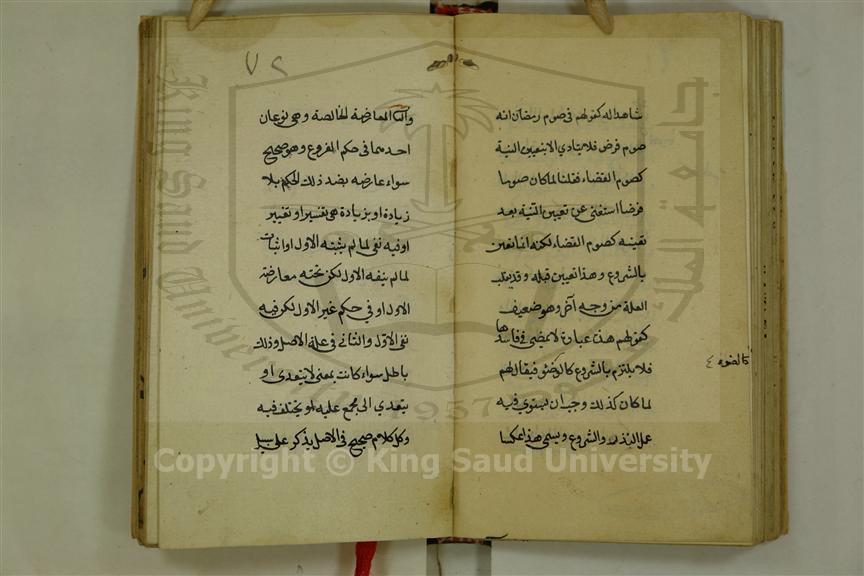 شاهدا له كقولهم في صوم رمضان انه
صوم فرض فلا يتادي الا بتعيين النية
كصوم القضاء فقلنا لما كان صوما
فرضا استغنى عن تعيين النية بعد
تعينه كصوم القضاء لكنه انما تعين
بالشروع وهذا تعين قبله وقد تقلب
العلة من وجه آخر وهو ضعيف
كقولهم هذه عبادة لا يمضي في فاسدها
فلا يلتزم بالشروع كالوضوء فيقال لهم
لما كان كذلك وجب ان يستوي فيه
عمل النذر والشروع ويسمى هذا عكسا
كالوضوء
٧٢
واما المعارضة الخالصة وهي نوعان
احدهما في حكم الفروع وهو صحيح
سواء عارضه بضد ذلك الحكم بلا
زيادة او بزيادة هي تفسير او تغيير
او فيه نفي لما لم يثبته الاول او اثبات
لما لم ينفه الاول لكن تحته معارضة
الاول او في حكم غير الاول لكن فيه
نفي الاول والثاني في علة الاصل وذلك
باطل سواء كانت بمعنى لا يتعدى او
يتعدي الى مجمع عليه او يختلف فيه
وكل كلام صحيح في الاصل يذكر على سبيل
جامعة الملك سعود
King Saud University
1957
Copyright © King Saud University